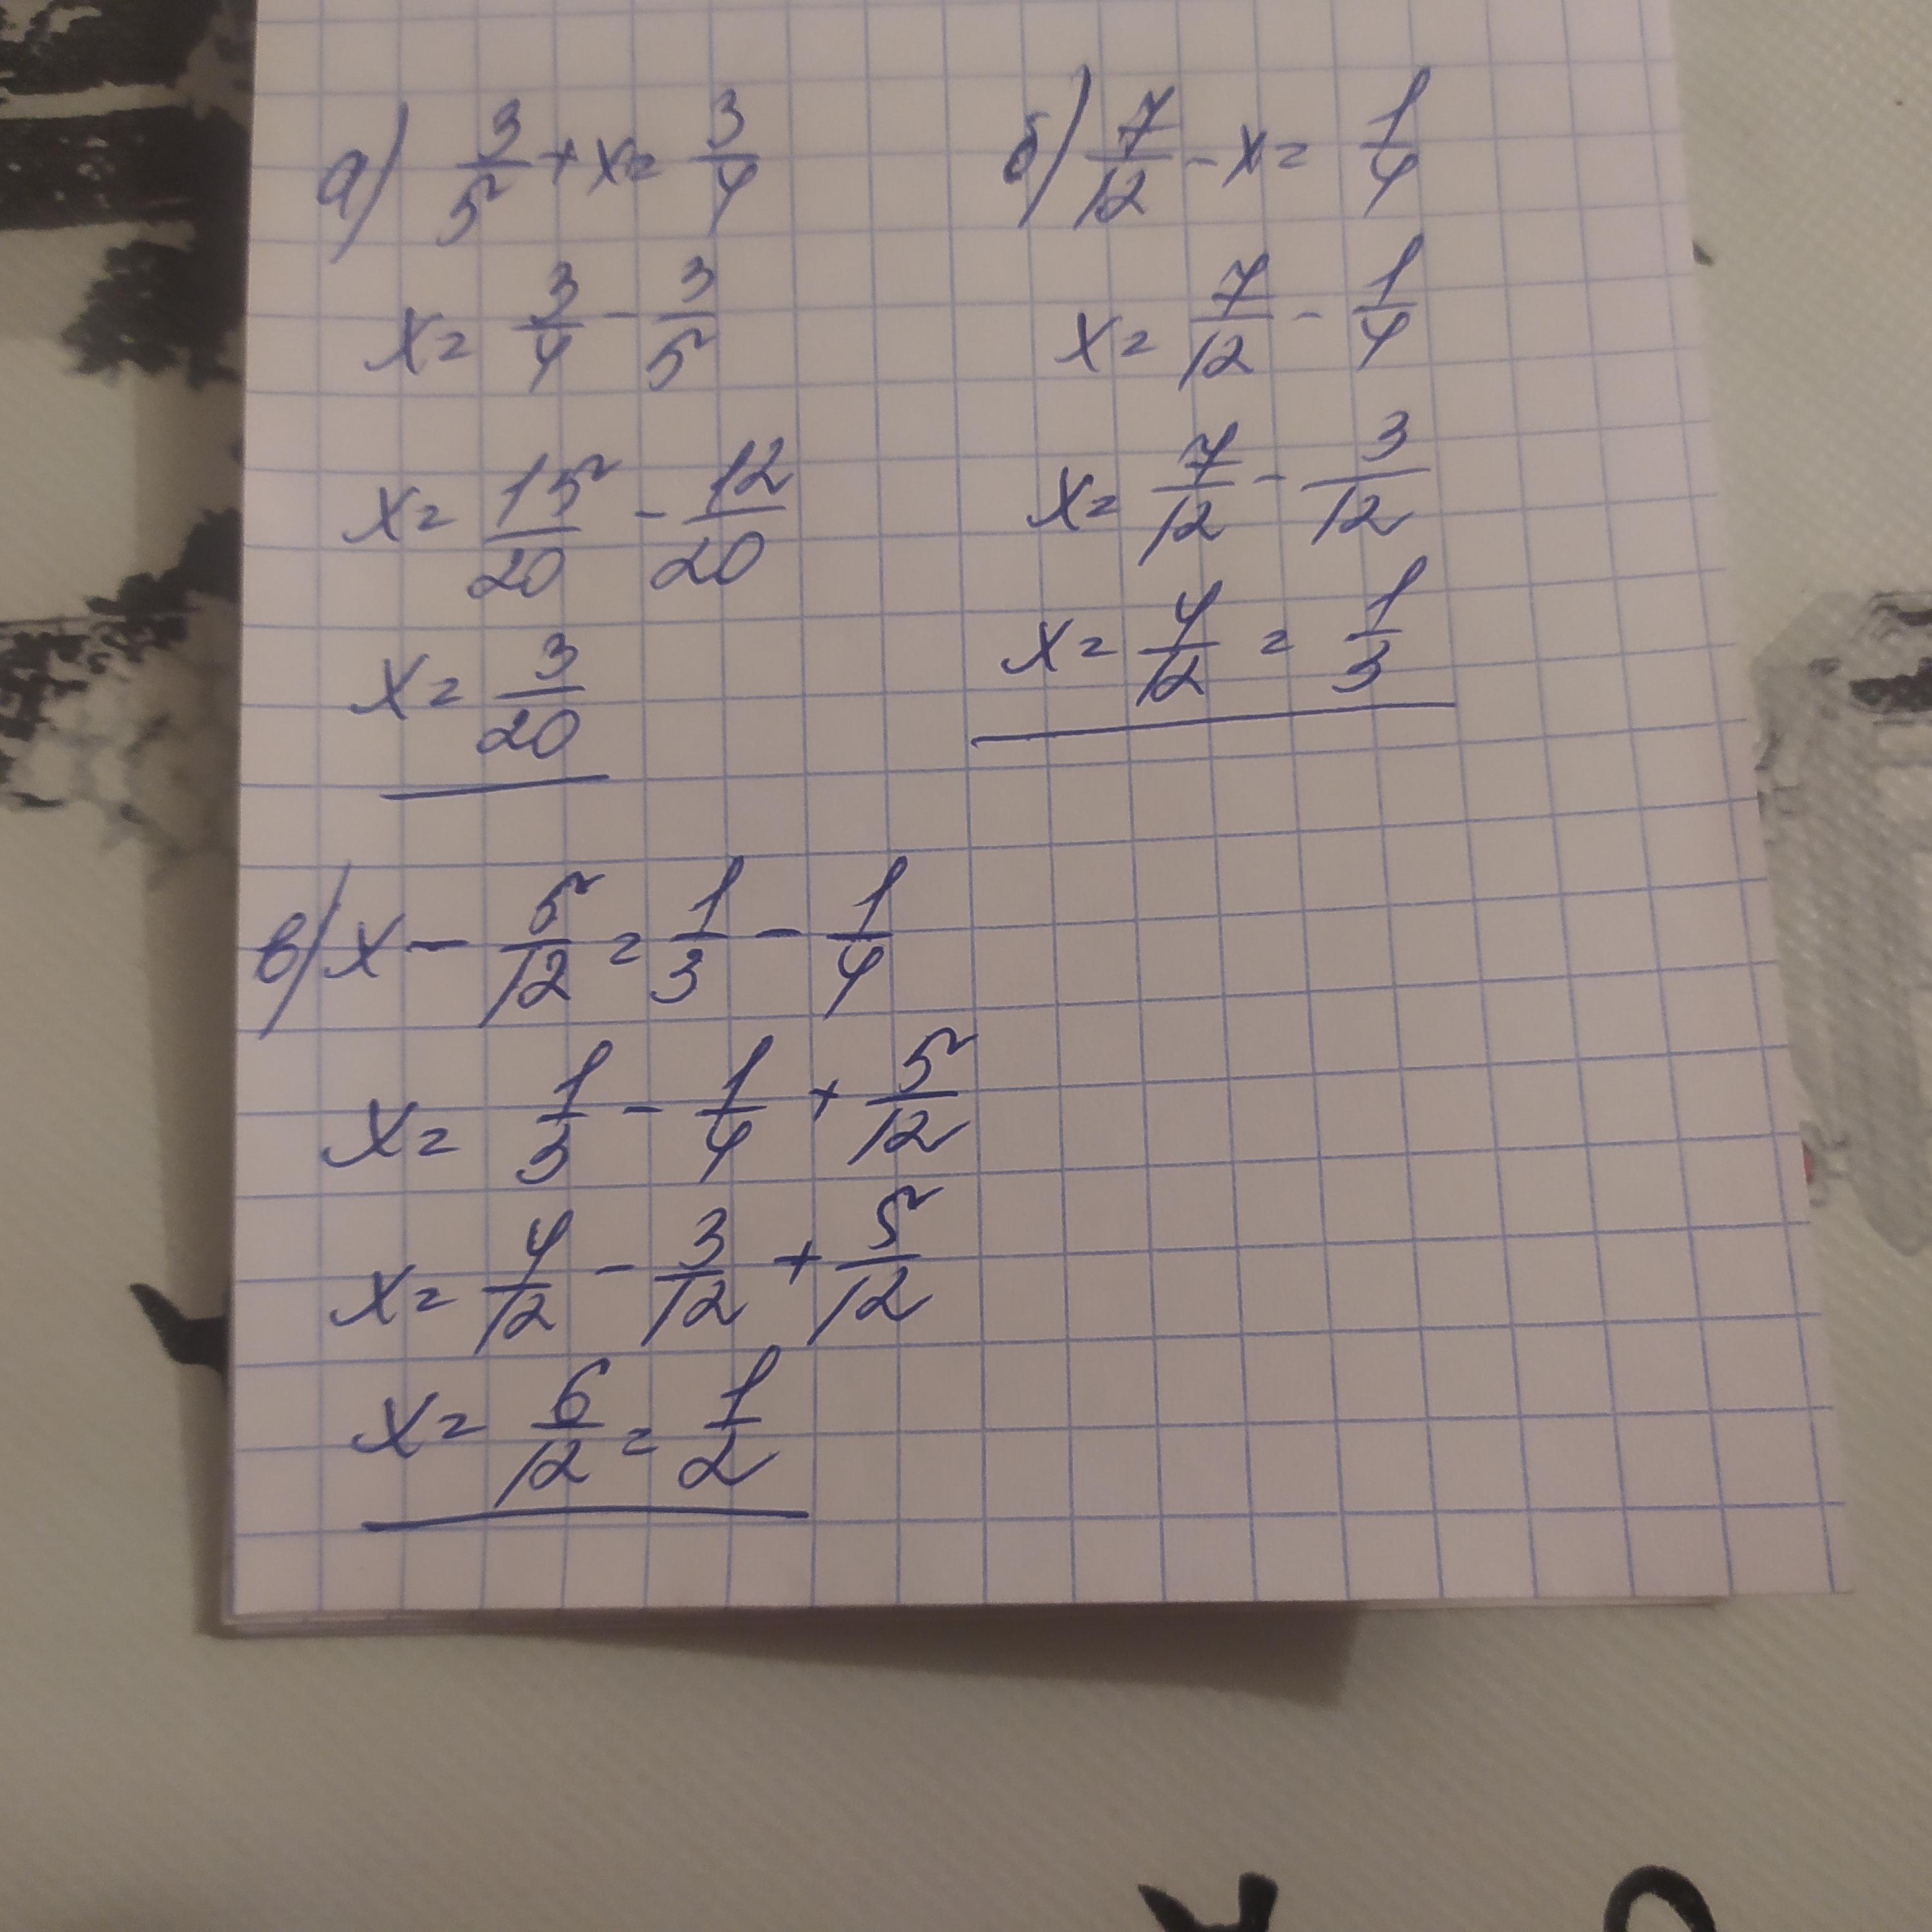 а) 3/5 + x = 3/4
x = 3/4 - 3/5
x = 15/20 - 12/20
x = 3/20
б) 7/12 - x = 1/4
x = 7/12 - 1/4
x = 7/12 - 3/12
x = 4/12 = 1/3
в) x - 5/12 = 1/3 - 1/4
x = 1/3 - 1/4 + 5/12
x = 4/12 - 3/12 + 5/12
x = 6/12 = 1/2